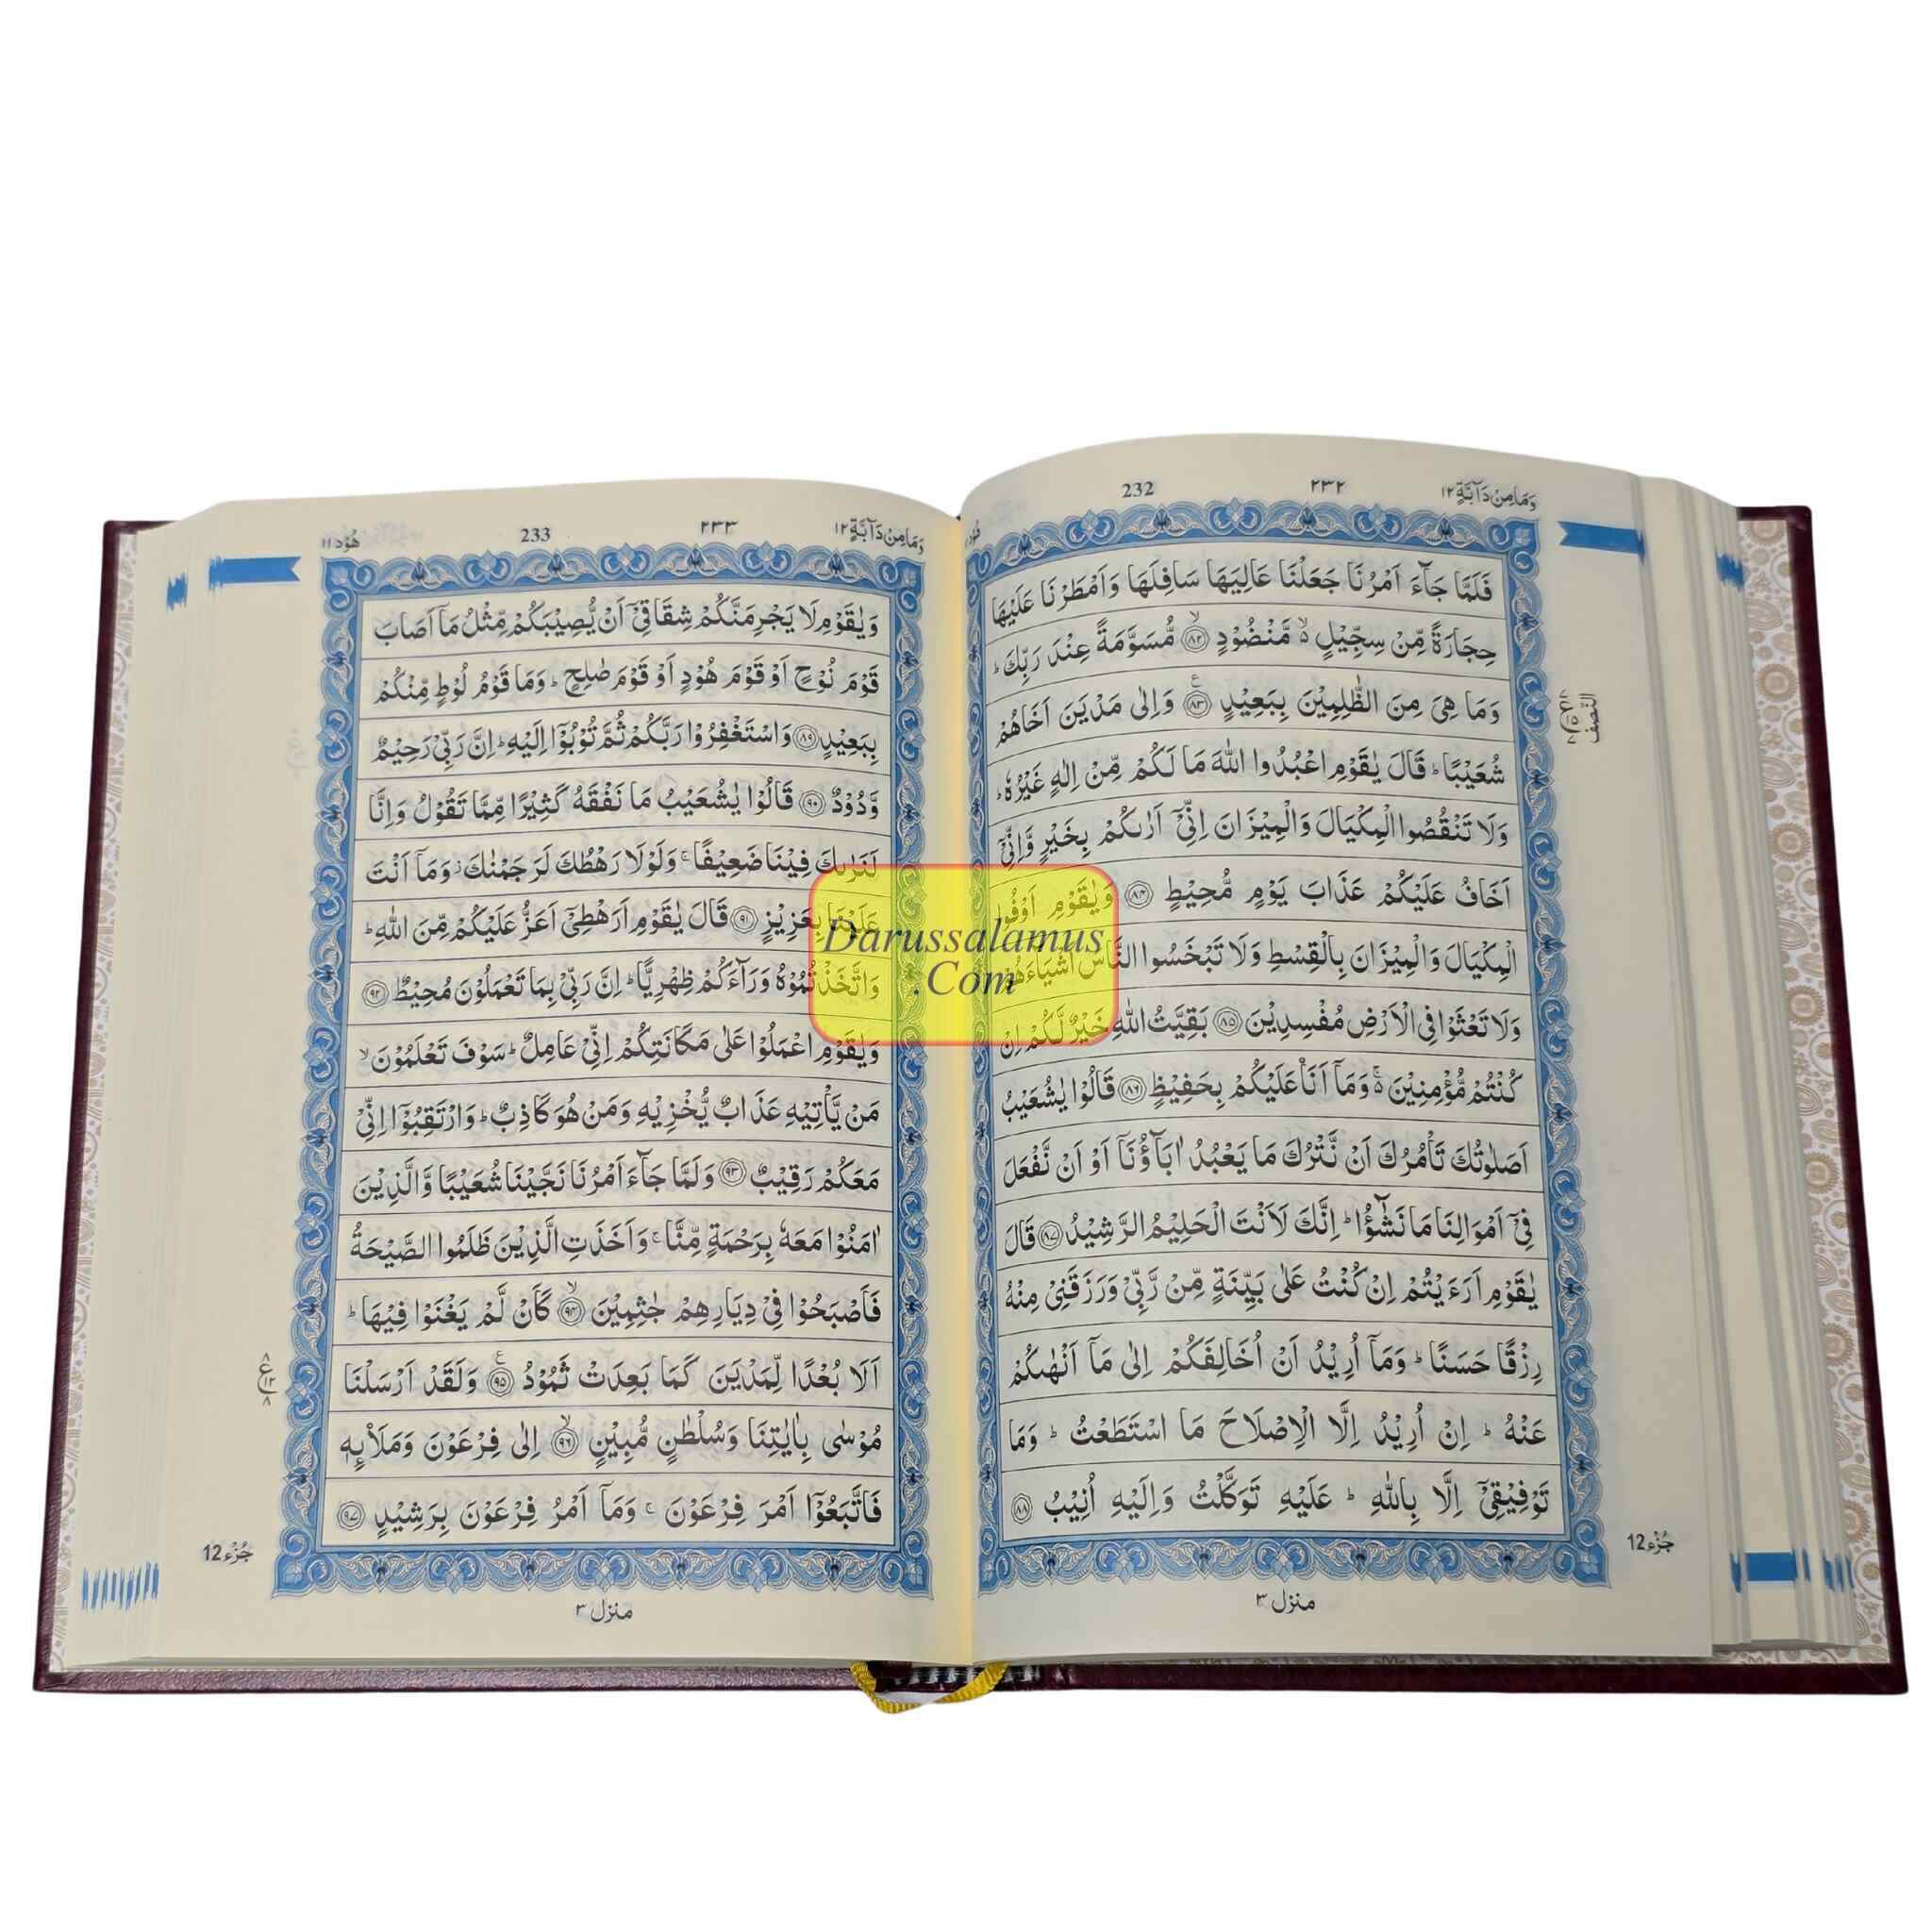 وَمَا مِنْ دَآبَّةٍ ١٢ ٢٣٢ 232 هُوْد
فَلَمَّا جَآءَ اَمْرُنَا جَعَلْنَا عَالِيَهَا سَافِلَهَا وَاَمْطَرْنَا عَلَيْهَا
حِجَارَةً مِّنْ سِجِّيْلٍ ۙ۬ مَّنْضُوْدٍ ۙ﴿۸۲﴾ مُّسَوَّمَةً عِنْدَ رَبِّكَ ؕ
وَمَا هِىَ مِنَ الظّٰلِمِيْنَ بِبَعِيْدٍ ﴿۸۳﴾ ع وَاِلٰى مَدْيَنَ اَخَاهُمْ
شُعَيْبًا ؕ قَالَ يٰقَوْمِ اعْبُدُوا اللّٰهَ مَا لَكُمْ مِّنْ اِلٰهٍ غَيْرُهٗ ؕ
وَلَا تَنْقُصُوا الْمِكْيَالَ وَالْمِيْزَانَ اِنِّىْۤ اَرٰىكُمْ بِخَيْرٍ وَّاِنِّىْۤ
اَخَافُ عَلَيْكُمْ عَذَابَ يَوْمٍ مُّحِيْطٍ ﴿۸۴﴾ وَيٰقَوْمِ اَوْفُوا
الْمِكْيَالَ وَالْمِيْزَانَ بِالْقِسْطِ وَلَا تَبْخَسُوا النَّاسَ اَشْيَآءَهُمْ
وَلَا تَعْثَوْا فِى الْاَرْضِ مُفْسِدِيْنَ ﴿۸۵﴾ بَقِيَّتُ اللّٰهِ خَيْرٌ لَّكُمْ اِنْ
كُنْتُمْ مُّؤْمِنِيْنَ ۬ۚ وَمَاۤ اَنَا۠ عَلَيْكُمْ بِحَفِيْظٍ ﴿۸۶﴾ قَالُوْا يٰشُعَيْبُ
اَصَلٰوتُكَ تَاْمُرُكَ اَنْ نَّتْرُكَ مَا يَعْبُدُ اٰبَآؤُنَاۤ اَوْ اَنْ نَّفْعَلَ
فِىْۤ اَمْوَالِنَا مَا نَشٰٓؤُا ؕ اِنَّكَ لَاَنْتَ الْحَلِيْمُ الرَّشِيْدُ ﴿۸۷﴾ قَالَ
يٰقَوْمِ اَرَءَيْتُمْ اِنْ كُنْتُ عَلٰى بَيِّنَةٍ مِّنْ رَّبِّىْ وَرَزَقَنِىْ مِنْهُ
رِزْقًا حَسَنًا ؕ وَمَاۤ اُرِيْدُ اَنْ اُخَالِفَكُمْ اِلٰى مَاۤ اَنْهٰىكُمْ
عَنْهُ ؕ اِنْ اُرِيْدُ اِلَّا الْاِصْلَاحَ مَا اسْتَطَعْتُ ؕ وَمَا
تَوْفِيْقِىْۤ اِلَّا بِاللّٰهِ ؕ عَلَيْهِ تَوَكَّلْتُ وَاِلَيْهِ اُنِيْبُ ﴿۸۸﴾
النِّصْف
جُزْء 12
منزل ۳
وَمَا مِنْ دَآبَّةٍ ١٢ ٢٣٣ 233 هُوْد ١١
وَيٰقَوْمِ لَا يَجْرِمَنَّكُمْ شِقَاقِىْۤ اَنْ يُّصِيْبَكُمْ مِّثْلُ مَاۤ اَصَابَ
قَوْمَ نُوْحٍ اَوْ قَوْمَ هُوْدٍ اَوْ قَوْمَ صٰلِحٍ ؕ وَمَا قَوْمُ لُوْطٍ مِّنْكُمْ
بِبَعِيْدٍ ﴿۸۹﴾ وَاسْتَغْفِرُوْا رَبَّكُمْ ثُمَّ تُوْبُوْۤا اِلَيْهِ ؕ اِنَّ رَبِّىْ رَحِيْمٌ
وَّدُوْدٌ ﴿۹۰﴾ قَالُوْا يٰشُعَيْبُ مَا نَفْقَهُ كَثِيْرًا مِّمَّا تَقُوْلُ وَاِنَّا
لَنَرٰىكَ فِيْنَا ضَعِيْفًا ۚ وَلَوْلَا رَهْطُكَ لَرَجَمْنٰكَ ؗ وَمَاۤ اَنْتَ
عَلَيْنَا بِعَزِيْزٍ ﴿۹۱﴾ قَالَ يٰقَوْمِ اَرَهْطِىْۤ اَعَزُّ عَلَيْكُمْ مِّنَ اللّٰهِ ؕ
وَاتَّخَذْتُمُوْهُ وَرَآءَكُمْ ظِهْرِيًّا ؕ اِنَّ رَبِّىْ بِمَا تَعْمَلُوْنَ مُحِيْطٌ ﴿۹۲﴾
وَيٰقَوْمِ اعْمَلُوْا عَلٰى مَكَانَتِكُمْ اِنِّىْ عَامِلٌ ؕ سَوْفَ تَعْلَمُوْنَ ۙ
مَنْ يَّاْتِيْهِ عَذَابٌ يُّخْزِيْهِ وَمَنْ هُوَ كَاذِبٌ ؕ وَارْتَقِبُوْۤا اِنِّىْ
مَعَكُمْ رَقِيْبٌ ﴿۹۳﴾ وَلَمَّا جَآءَ اَمْرُنَا نَجَّيْنَا شُعَيْبًا وَّالَّذِيْنَ
اٰمَنُوْا مَعَهٗ بِرَحْمَةٍ مِّنَّا ۚ وَاَخَذَتِ الَّذِيْنَ ظَلَمُوا الصَّيْحَةُ
فَاَصْبَحُوْا فِىْ دِيَارِهِمْ جٰثِمِيْنَ ۙ﴿۹۴﴾ كَاَنْ لَّمْ يَغْنَوْا فِيْهَا ؕ
اَلَا بُعْدًا لِّمَدْيَنَ كَمَا بَعِدَتْ ثَمُوْدُ ﴿۹۵﴾ ع وَلَقَدْ اَرْسَلْنَا
مُوْسٰى بِاٰيٰتِنَا وَسُلْطٰنٍ مُّبِيْنٍ ۙ﴿۹۶﴾ اِلٰى فِرْعَوْنَ وَمَلَا۠ئِهٖ
فَاتَّبَعُوْۤا اَمْرَ فِرْعَوْنَ ۚ وَمَاۤ اَمْرُ فِرْعَوْنَ بِرَشِيْدٍ ﴿۹۷﴾
جُزْء 12
منزل ۳
Darussalamus
.Com